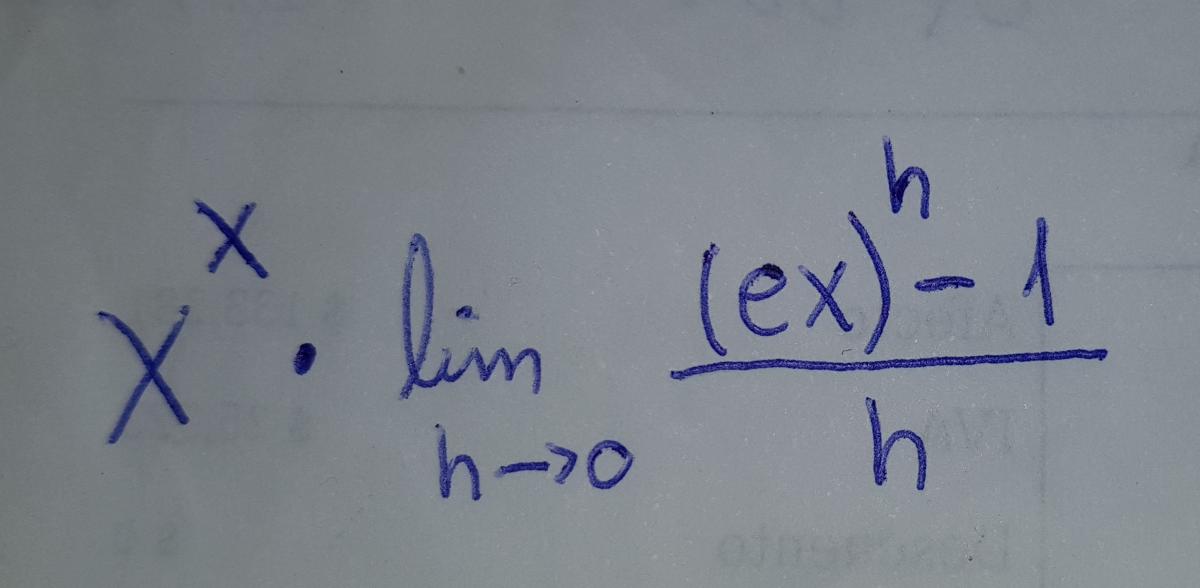 x^x · lim_{h→0} ((ex)^h - 1)/h